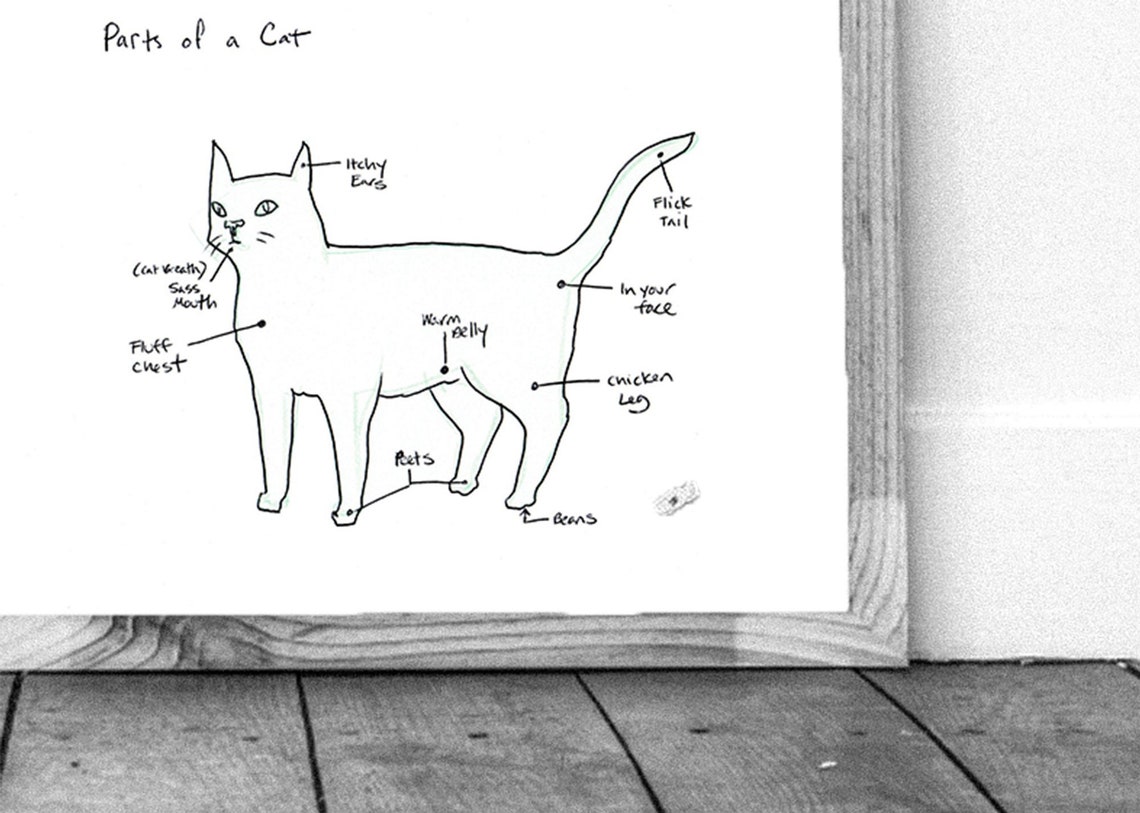 Parts of a Cat
Itchy
Ears
Flick
Tail
(cat breath)
Sass
Mouth
In your
face
Warm
Belly
Fluff
chest
chicken
Leg
Peets
Beans